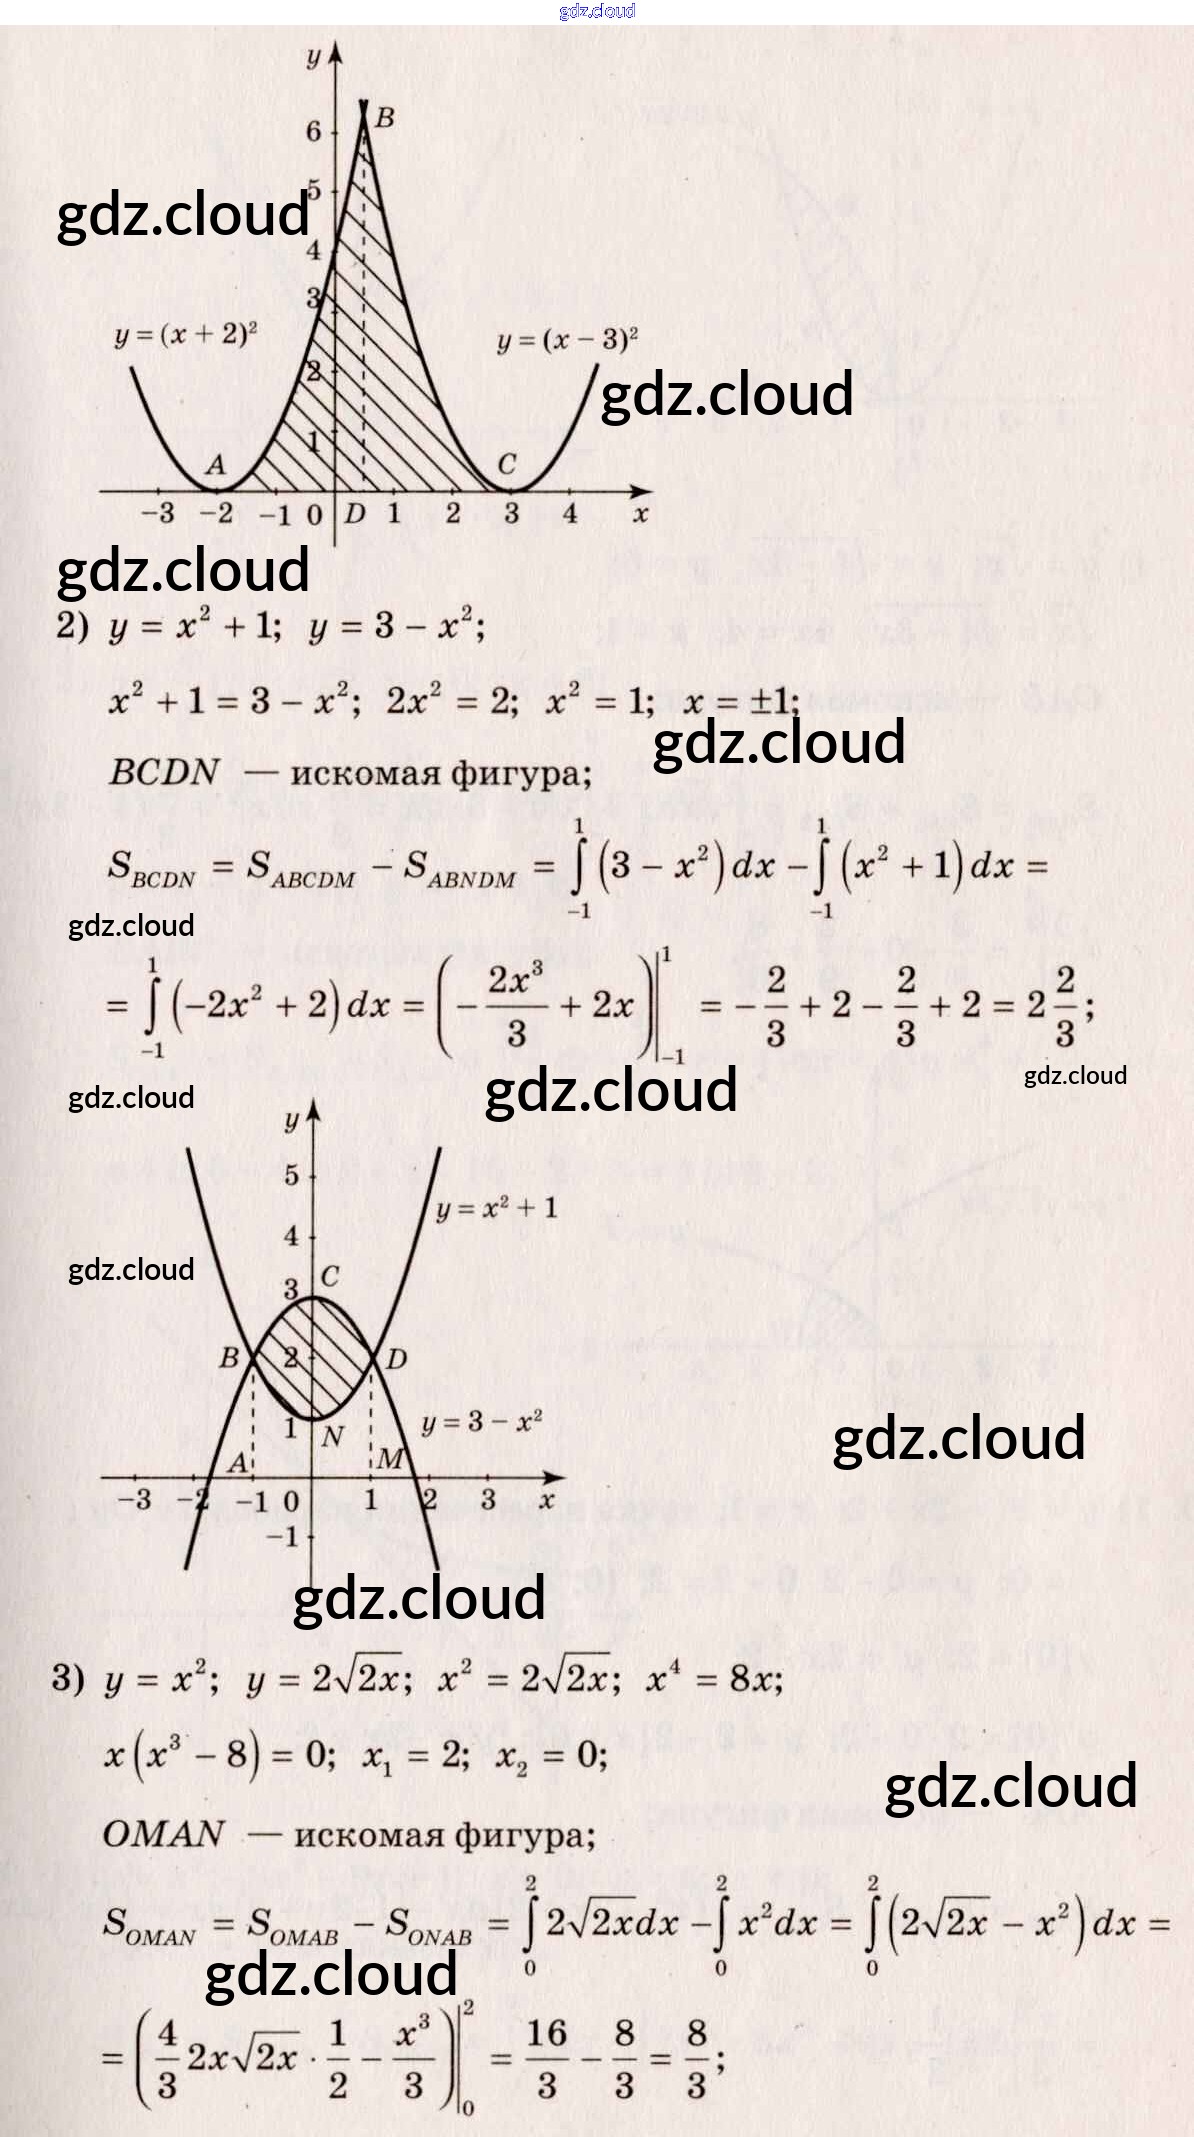 gdz.cloud
y
6
B
gdz.cloud
5
4
3
y = (x + 2)²
y = (x − 3)²
2
gdz.cloud
1
A
C
−3 −2 −1 0 D 1 2 3 4 x
gdz.cloud
2) y = x² + 1; y = 3 − x²;
x² + 1 = 3 − x²; 2x² = 2; x² = 1; x = ±1;
gdz.cloud
BCDN — искомая фигура;
S_BCDN = S_ABCDM − S_ABNDM = ∫₋₁¹ (3 − x²) dx − ∫₋₁¹ (x² + 1) dx =
gdz.cloud
= ∫₋₁¹ (−2x² + 2) dx = (− 2x³/3 + 2x)|₋₁¹ = − 2/3 + 2 − 2/3 + 2 = 2 2/3;
gdz.cloud
gdz.cloud
gdz.cloud
y
5
y = x² + 1
4
gdz.cloud
3 C
B 2 D
1 N
y = 3 − x²
gdz.cloud
A M
−3 −2 −1 0 1 2 3 x
−1
gdz.cloud
3) y = x²; y = 2√(2x); x² = 2√(2x); x⁴ = 8x;
x(x³ − 8) = 0; x₁ = 2; x₂ = 0;
gdz.cloud
OMAN — искомая фигура;
S_OMAN = S_OMAB − S_ONAB = ∫₀² 2√(2x) dx − ∫₀² x² dx = ∫₀² (2√(2x) − x²) dx =
gdz.cloud
= (4/3 2x√(2x) · 1/2 − x³/3)|₀² = 16/3 − 8/3 = 8/3;